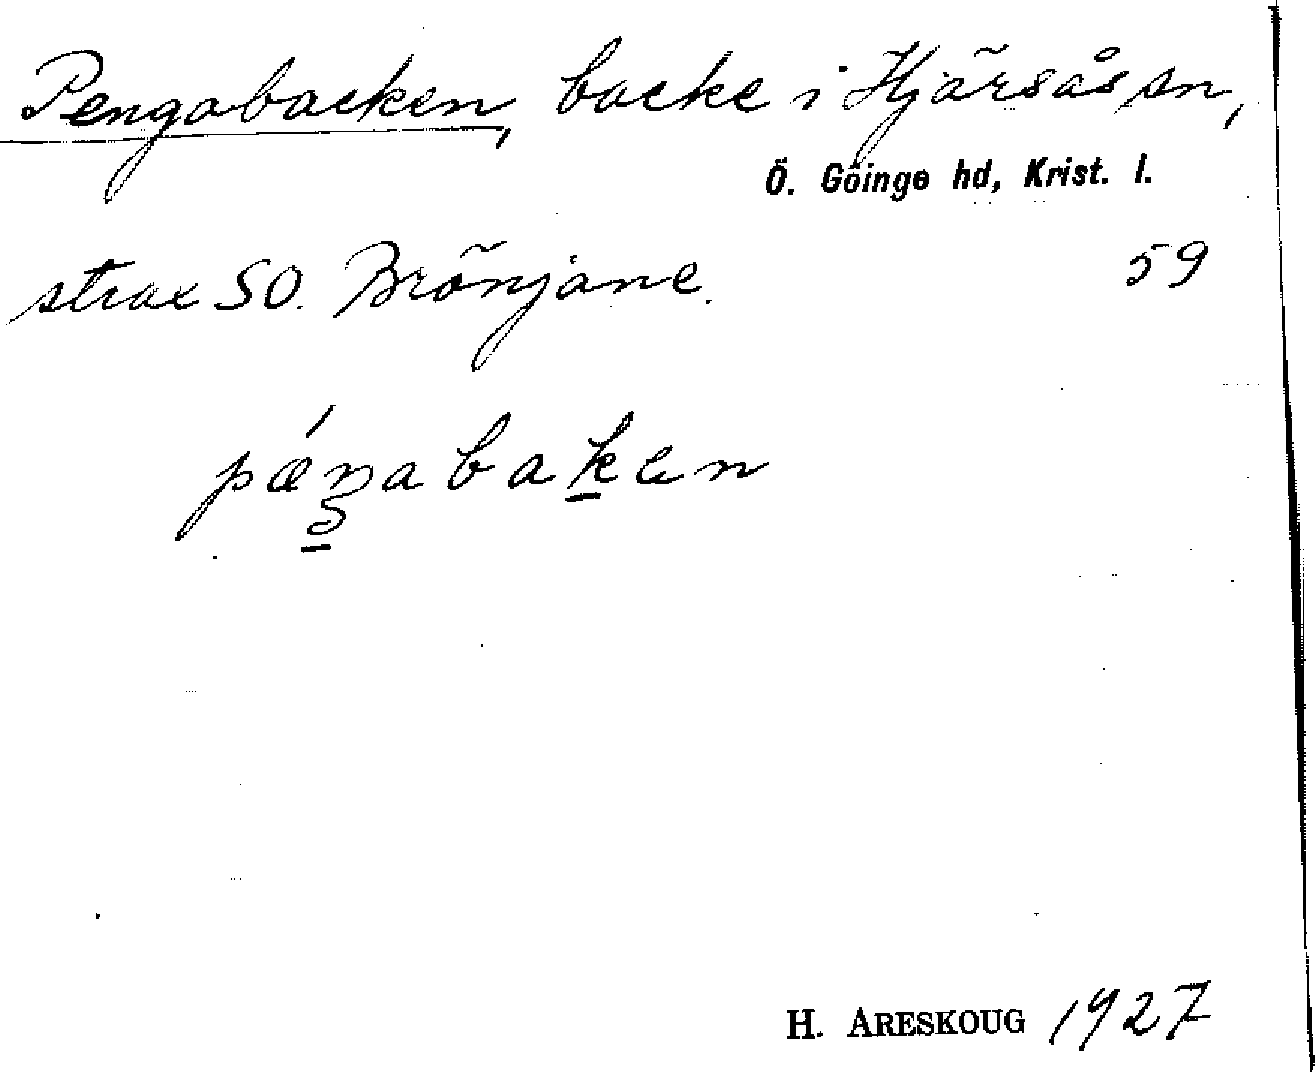 Pengabacken, backe i Hjärsås sn,
Ö. Göinge hd, Krist. l.
strax SO. Brönjane. 59
pǽŋabaken
H. ARESKOUG 1927